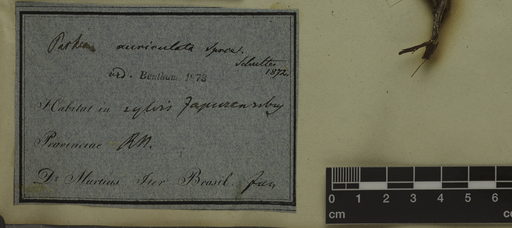 Parkia auriculata Spruce.
Schultes 1972
vid. Bentham. 1873
Habitat in sylvis Japurensibus
Provinciae R.N.
Dr Martius Iter Brasil. Jan
0 1 2 3 4 5 6
cm